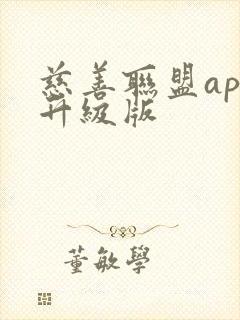 慈善聯盟ap
升級版
董敏學